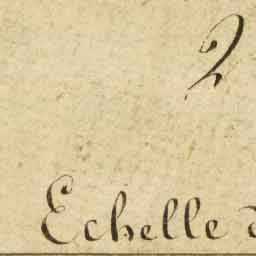 2
Echelle